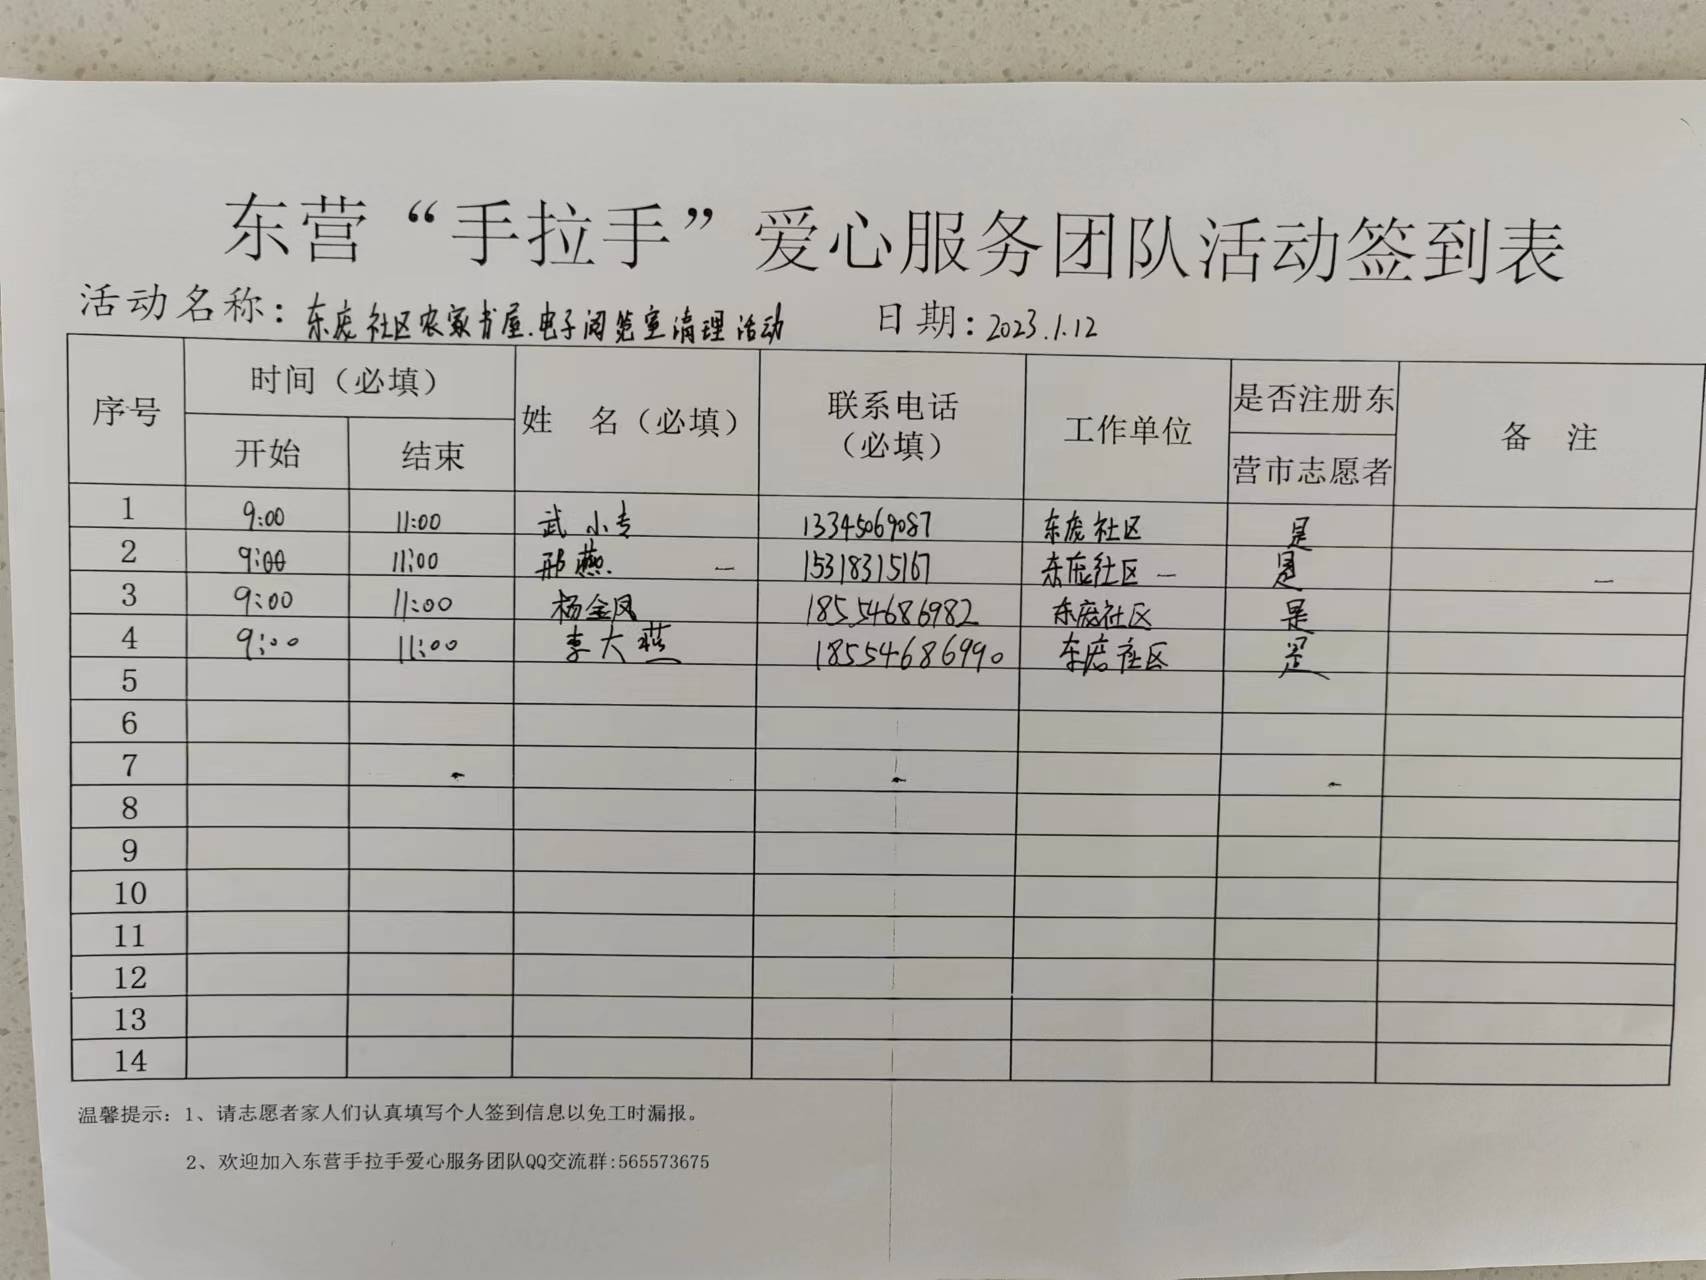 东营“手拉手”爱心服务团队活动签到表
活动名称：东庞社区农家书屋.电子阅览室清理活动 日期：2023.1.12
序号 时间（必填） 姓 名（必填） 联系电话（必填） 工作单位 是否注册东营市志愿者 备 注
开始 结束
1 9:00 11:00 武小专 13345069087 东庞社区 是
2 9:00 11:00 邢燕. 15318315167 东庞社区 是
3 9:00 11:00 杨金凤 18554686982 东庞社区 是
4 9:00 11:00 李大燕 18554686990 东庞社区 是
5
6
7
8
9
10
11
12
13
14
温馨提示：1、请志愿者家人们认真填写个人签到信息以免工时漏报。
2、欢迎加入东营手拉手爱心服务团队QQ交流群:565573675